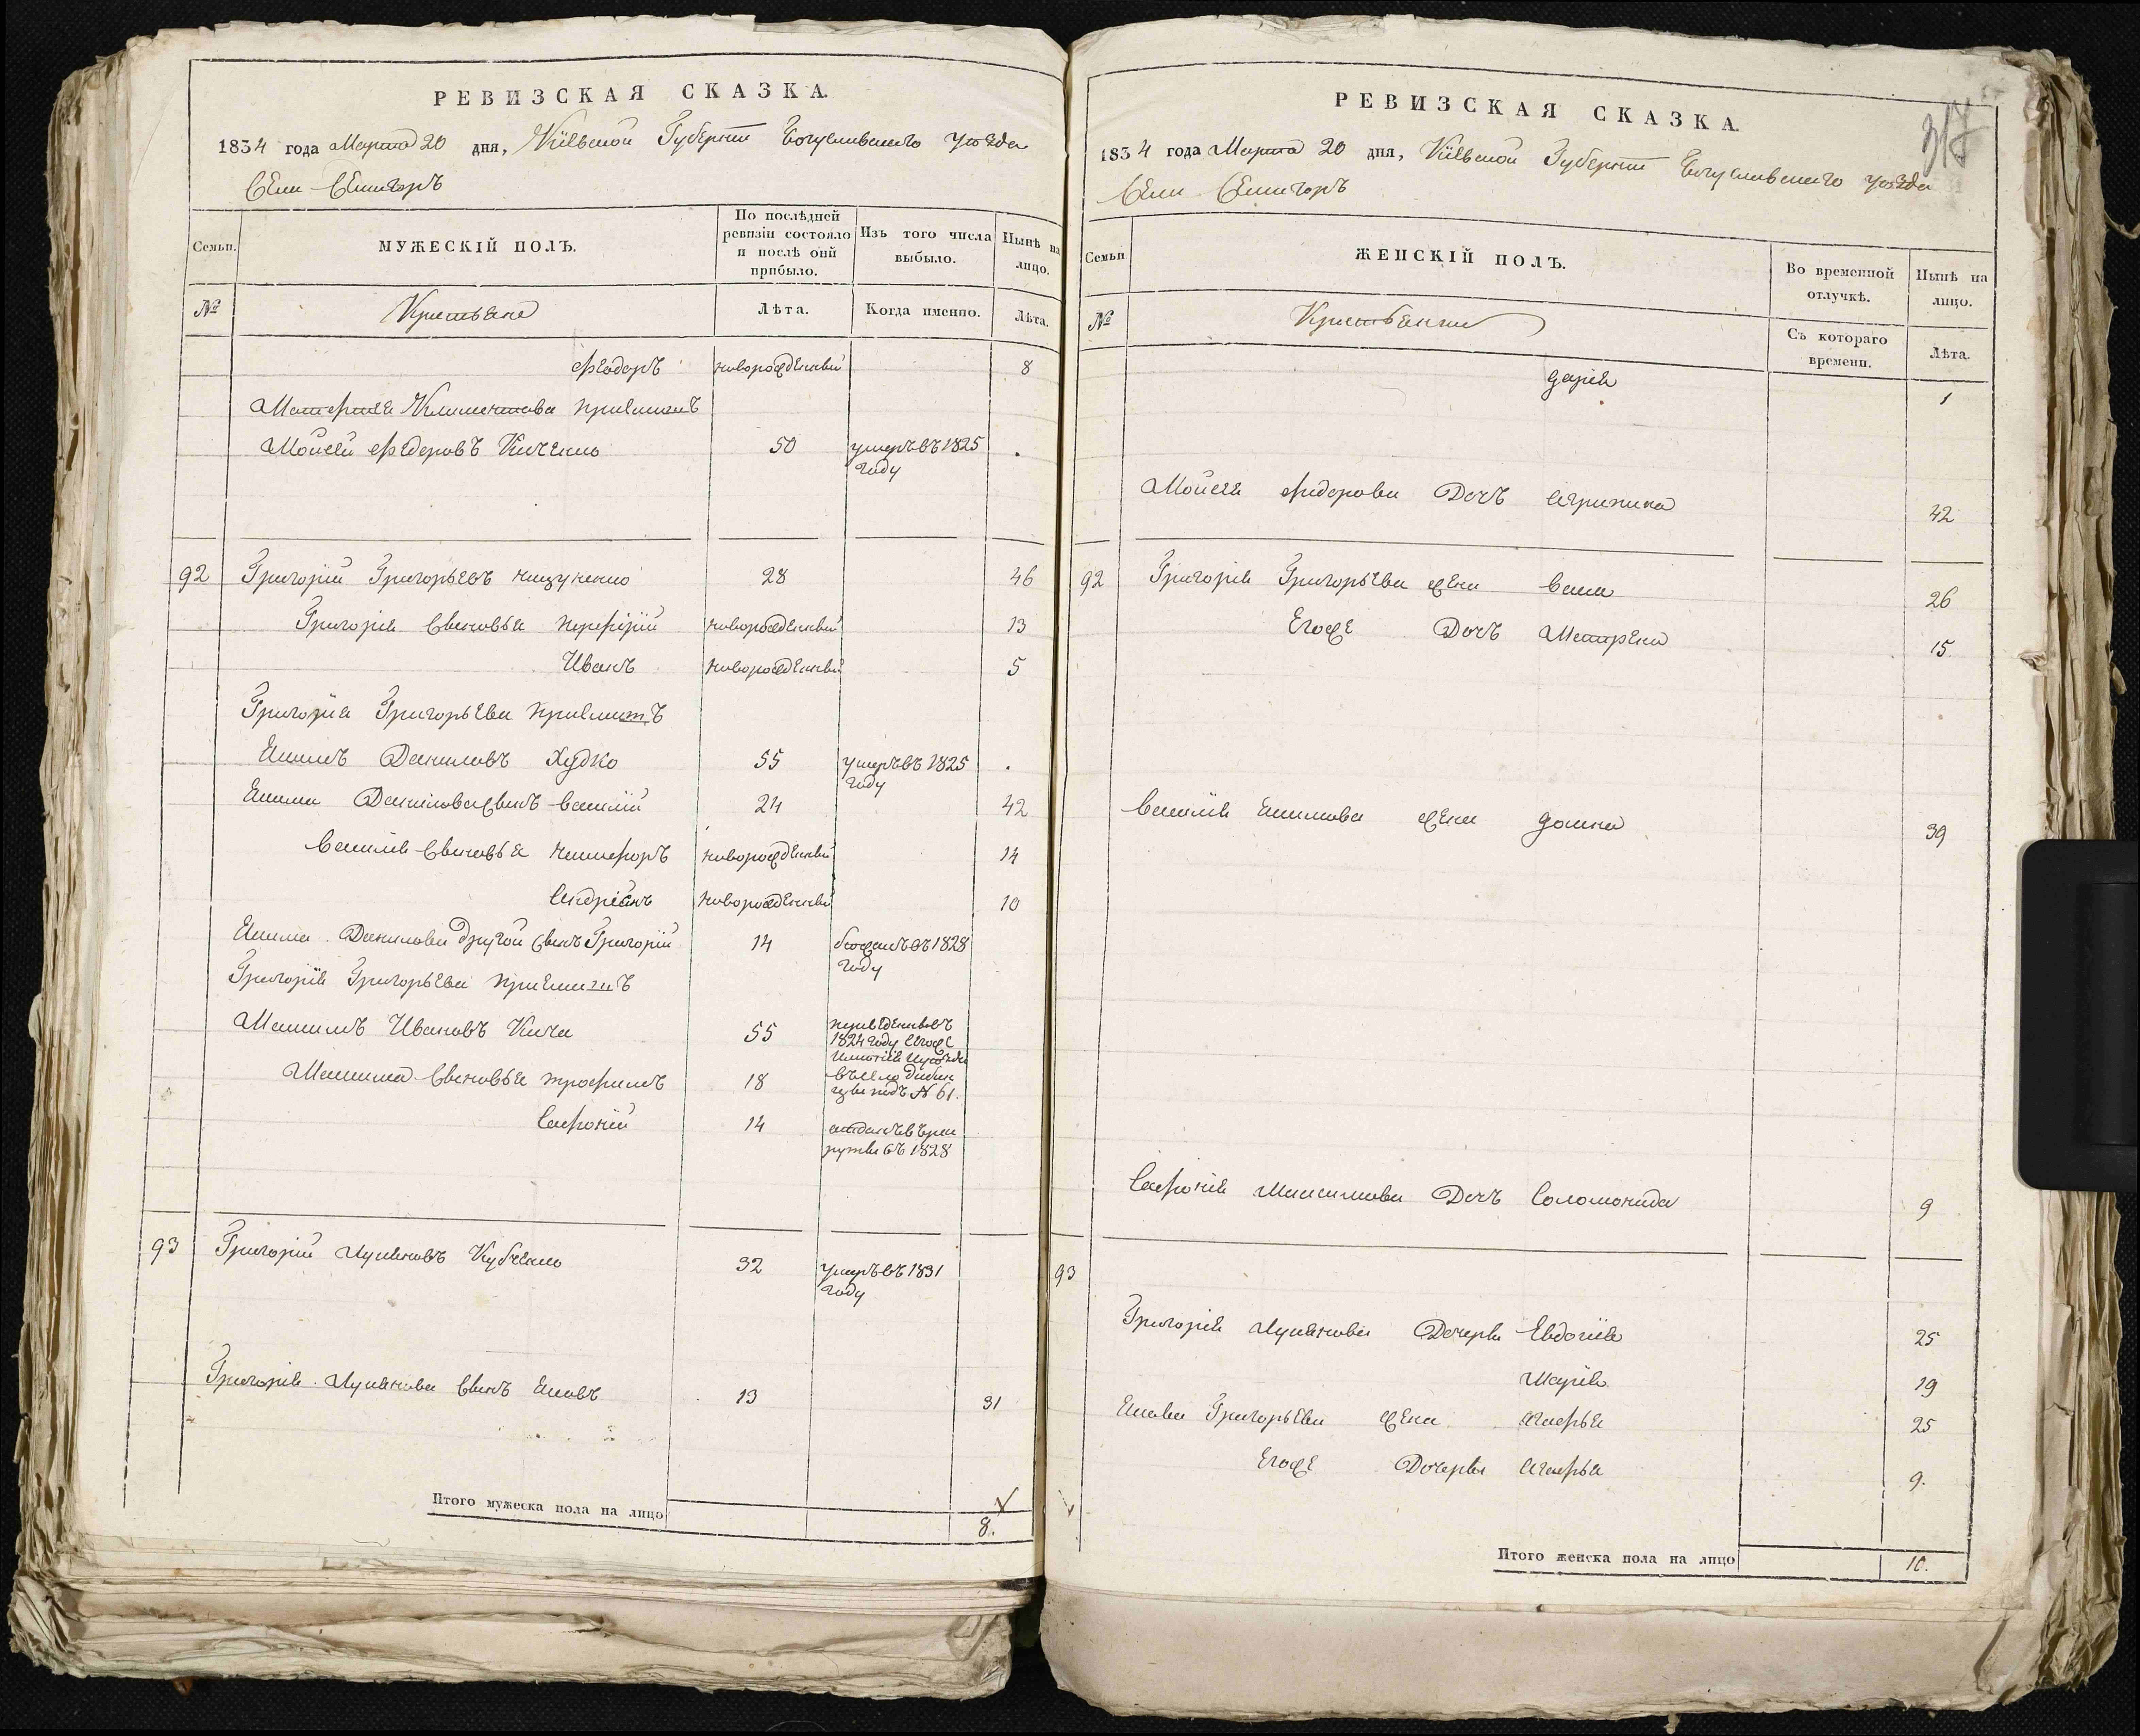 РЕВИЗСКАЯ СКАЗКА.
1834 года Марта 20 дня, Кіевской Губерніи Богуславскаго уѣзда
Села Семигоръ
Семьи.
МУЖЕСКІЙ ПОЛЪ.
По послѣдней ревизіи состояло и послѣ оной прибыло.
Изъ того числа выбыло.
Нынѣ на лицо.
№
Крестьяне
Лѣта.
Когда именно.
Лѣта.
Федоръ новорожденный 8
Климентова приимытъ
Мойсей Федоровъ Киченко 50 умеръ въ 1825 году .
92 Григорій Григорьевъ 28 46
Григорія сыновья Порфирій новорожденный 13
Иванъ новорожденный 5
Григорія Григорьева приимытъ
Екимъ Даниловъ Худко 55 умеръ въ 1825 году .
Екима Данилова сынъ Василій 24 42
Василія сыновья Никифоръ новорожденный 14
Андріянъ новорожденный 10
Екима Данилова другой сынъ Григорій 14 бежалъ въ 1828 году
Григорія Григорьева приимытъ
Максимъ Ивановъ Кича 55 переведены въ 1824 году
въ село
подъ № 61.
Максима сыновья Трофимъ 18
Сафроній 14 отданъ въ рекруты въ 1828
93 Григорій Лукяновъ Кубченко 32 умеръ въ 1831 году
Григорія Лукянова сынъ Яковъ 13 31
Итого мужеска пола на лицо 8.
РЕВИЗСКАЯ СКАЗКА.
1834 года Марта 20 дня, Кіевской Губерніи Богуславскаго уѣзда
Села Семигоръ
Семьи
ЖЕНСКІЙ ПОЛЪ.
Во временной отлучкѣ.
Нынѣ на лицо.
№
Крестьянки
Съ котораго времени.
Лѣта.
Дарія 1
Мойсея Федорова Дочъ Агрипина 42
92 Григорія Григорьева жена 26
Егоже Дочъ Матрена 15
Василія Екимова жена Домна 39
Сафронія Максимова Дочъ Соломонида 9
93
Григорія Лукянова Дочеры Евдокія 25
Марія 19
Якова Григорьева жена Агафья 25
Егоже Дочеры Агафья 9.
Итого женска пола на лицо 10.